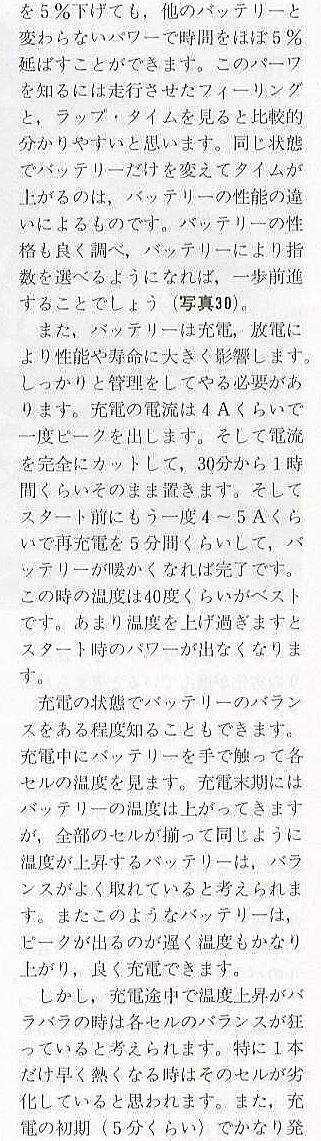 を5％下げても，他のバッテリーと
変わらないパワーで時間をほぼ5％
延ばすことができます。このパーワ
を知るには走行させたフィーリング
と，ラップ・タイムを見ると比較的
分かりやすいと思います。同じ状態
でバッテリーだけを変えてタイムが
上がるのは，バッテリーの性能の違
いによるものです。バッテリーの性
格も良く調べ，バッテリーにより指
数を選べるようになれば，一歩前進
することでしょう（写真30）。
また，バッテリーは充電，放電に
より性能や寿命に大きく影響します。
しっかりと管理をしてやる必要があ
ります。充電の電流は4Aくらいで
一度ピークを出します。そして電流
を完全にカットして，30分から1時
間くらいそのまま置きます。そして
スタート前にもう一度4～5Aくら
いで再充電を5分間くらいして，バ
ッテリーが暖かくなれば完了です。
この時の温度は40度くらいがベスト
です。あまり温度を上げ過ぎますと
スタート時のパワーが出なくなりま
す。
充電の状態でバッテリーのバラン
スをある程度知ることもできます。
充電中にバッテリーを手で触って各
セルの温度を見ます。充電末期には
バッテリーの温度は上がってきます
が，全部のセルが揃って同じように
温度が上昇するバッテリーは，バラ
ンスがよく取れていると考えられま
す。またこのようなバッテリーは，
ピークが出るのが遅く温度もかなり
上がり，良く充電できます。
しかし，充電途中で温度上昇がバ
ラバラの時は各セルのバランスが狂
っていると考えられます。特に1本
だけ早く熱くなる時はそのセルが劣
化していると思われます。また，充
電の初期（5分くらい）でかなり発